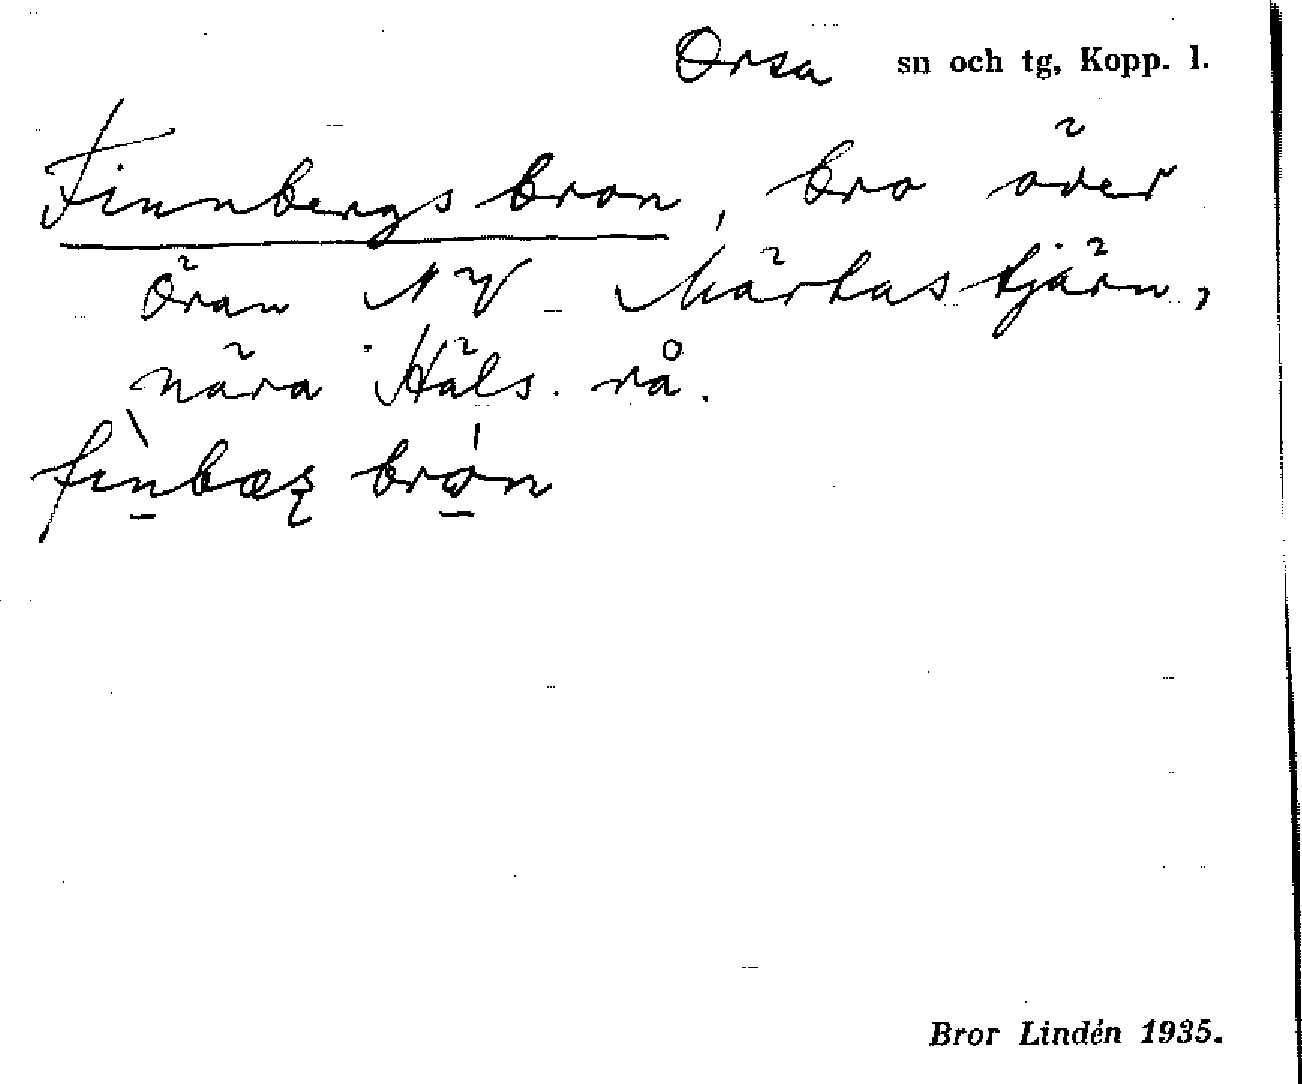 Orsa sn och tg, Kopp. l.
Finnbergsbron, bro över
Öran NV Märtastjärn,
nära Häls. rå.
fìnbæʂ brøn
Bror Lindén 1935.